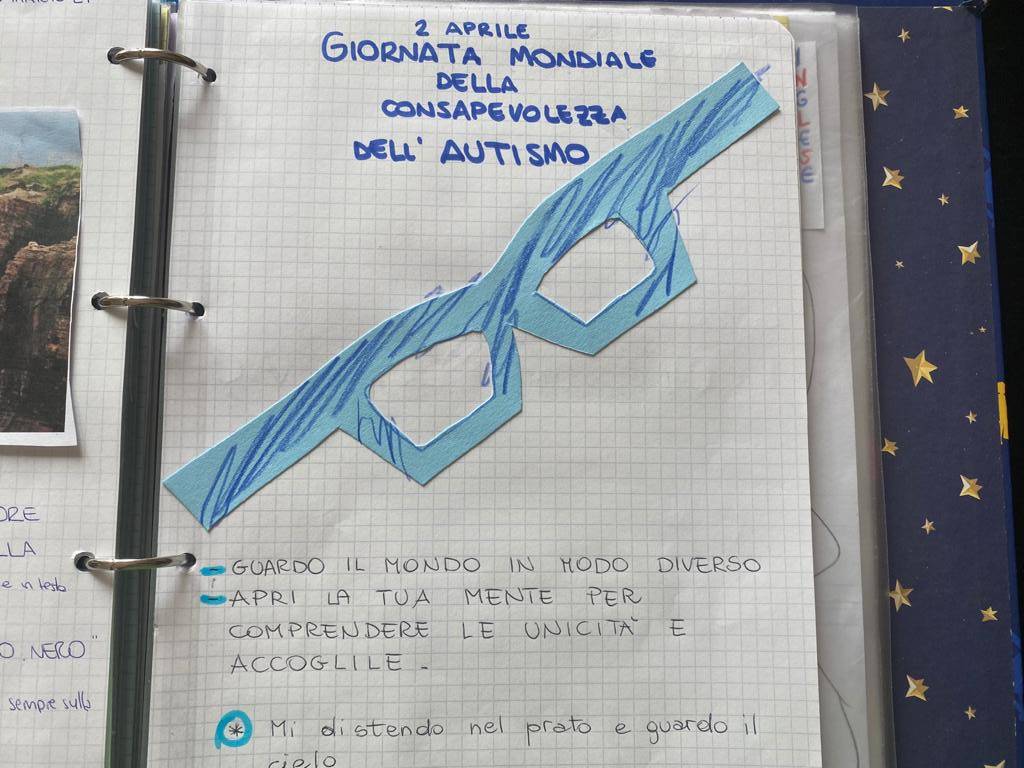 2 APRILE
GIORNATA MONDIALE
DELLA
CONSAPEVOLEZZA
DELL' AUTISMO
INGLESE
- GUARDO IL MONDO IN MODO DIVERSO
- APRI LA TUA MENTE PER
COMPRENDERE LE UNICITÀ E
ACCOGLILE -
* Mi distendo nel prato e guardo il
cielo
e in testa
O, NERO"
sempre sulla